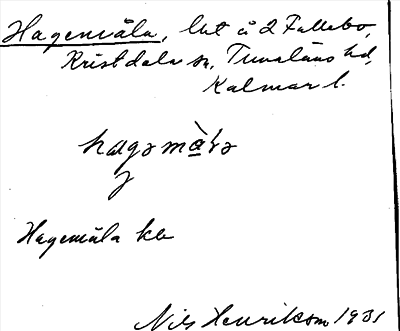 Hagemåla, lht å 2 Fallebo,
Kristdala sn, Tunaläns hd,
Kalmar l.
hagəmå̀la
Hagemåla kb
Nils Henrikson 1931